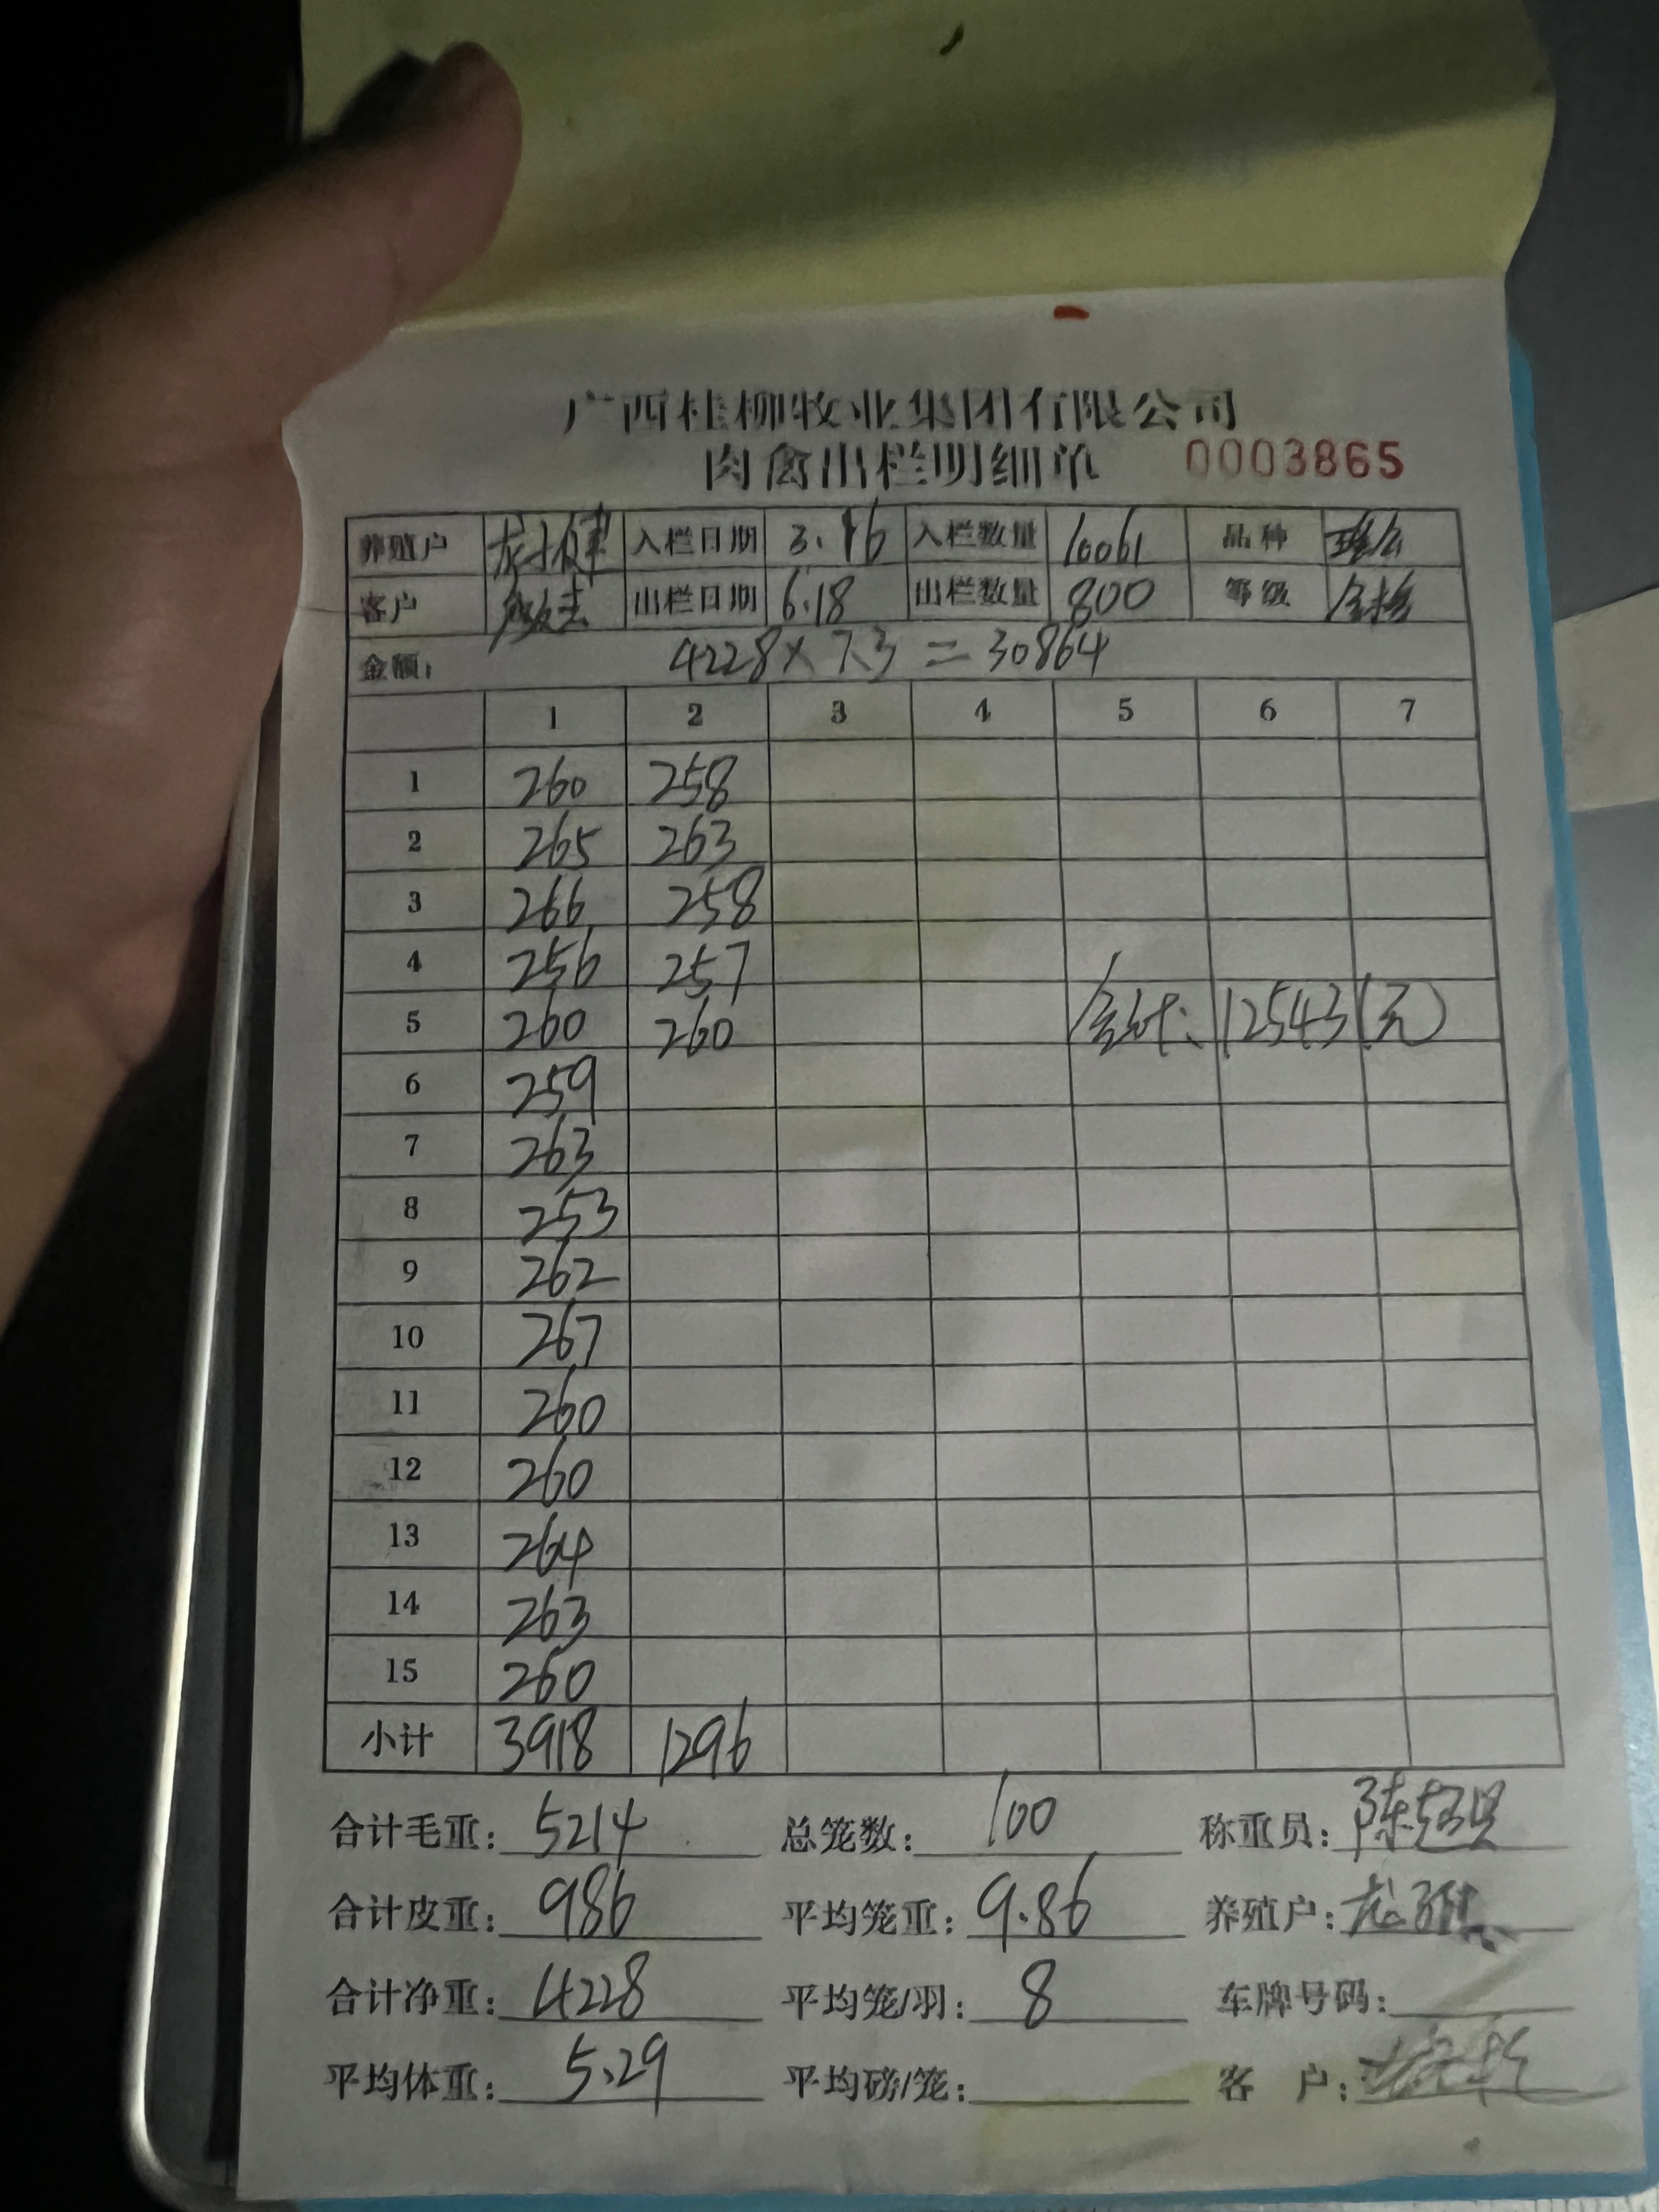 广西桂柳牧业集团有限公司
肉禽出栏明细单 0003865
养殖户 入栏日期 3.16 入栏数量 10061 品种
客户 出栏日期 6.18 出栏数量 800 等级
金额: 4228×7.3=30864
1 2 3 4 5 6 7
1 260 258
2 265 263
3 266 258
4 256 257
5 260 260 12543(元)
6 259
7 263
8 253
9 262
10 267
11 260
12 260
13 264
14 263
15 260
小计 3918 1296
合计毛重: 5214 总笼数: 100 称重员: 陈
合计皮重: 986 平均笼重: 9.86 养殖户: 龙
合计净重: 4228 平均笼/羽: 8 车牌号码:
平均体重: 5.29 平均磅/笼: 客户: